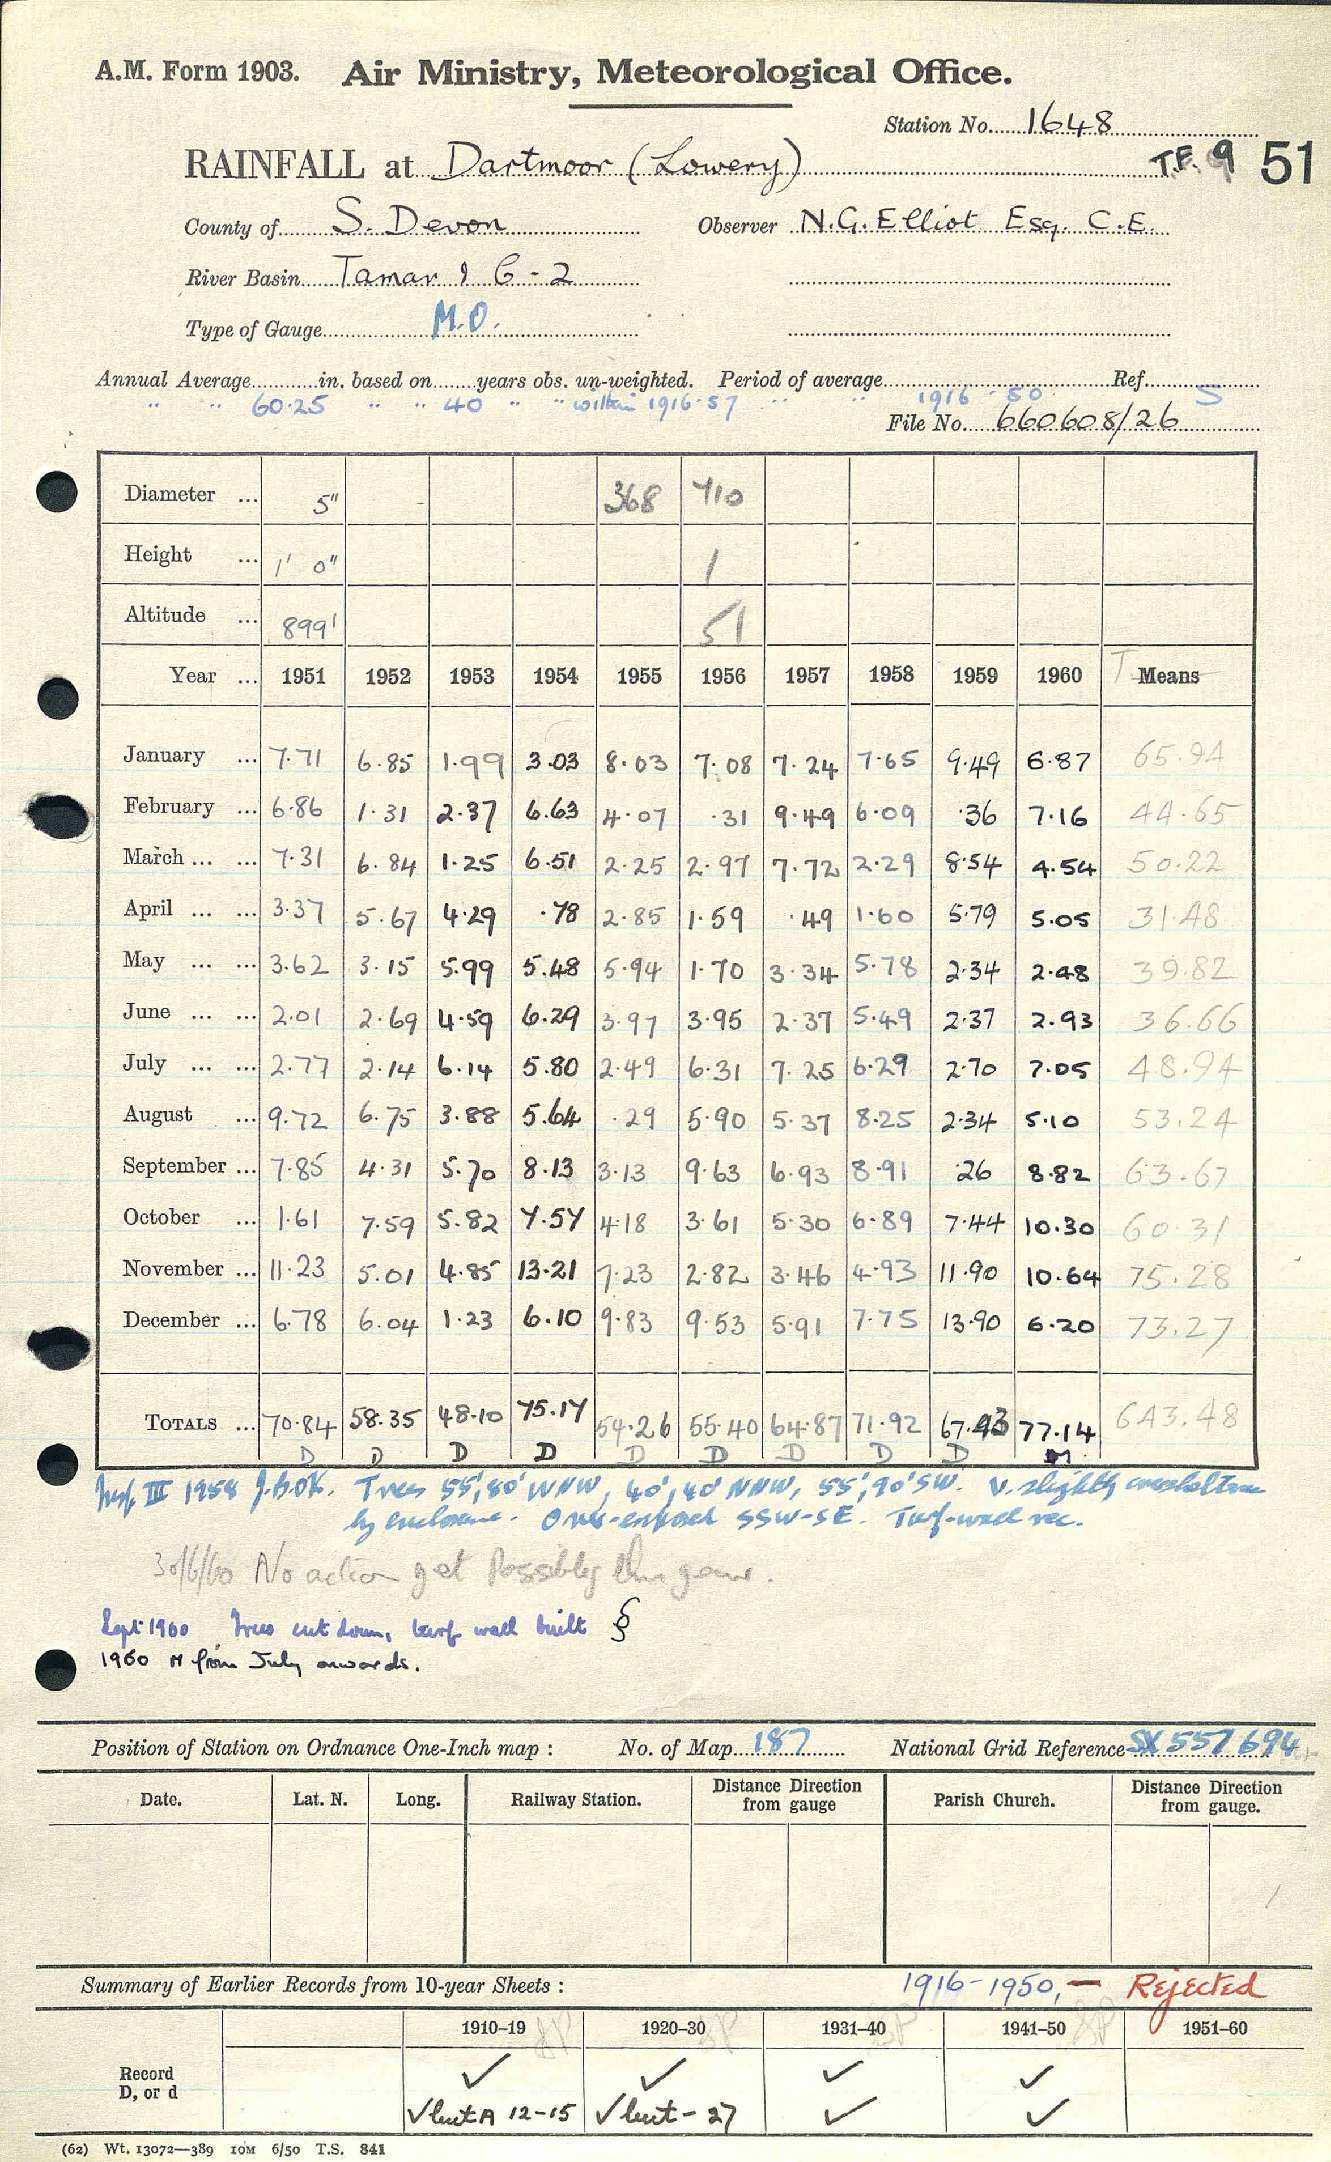 A.M. Form 1903. Air Ministry, Meteorological Office.
Station No. 1648
RAINFALL at Dartmoor (Lowery) T.F. 9 51
County of S. Devon Observer N.G. Elliot Esq. C.E.
River Basin Tamar 1 6-2
Type of Gauge M.O.
Annual Average in. based on years obs. un-weighted. Period of average Ref.
" " 60.25 " " 40 " " within 1916-57 " " 1916-50 S
File No. 660608/26
Diameter ... 5" 368 710
Height ... 1' 0" 1
Altitude ... 899' 51
Year ... 1951 1952 1953 1954 1955 1956 1957 1958 1959 1960 T Means
January ... 7.71 6.85 1.99 3.03 8.03 7.08 7.24 7.65 9.49 6.87 65.94
February ... 6.86 1.31 2.37 6.63 4.07 .31 9.49 6.09 .36 7.16 44.65
March ... ... 7.31 6.84 1.25 6.51 2.25 2.97 7.72 2.29 8.54 4.54 50.22
April ... ... 3.37 5.67 4.29 .78 2.85 1.59 .49 1.60 5.79 5.05 31.48
May ... ... 3.62 3.15 5.99 5.48 5.94 1.70 3.34 5.78 2.34 2.48 39.82
June ... ... 2.01 2.69 4.59 6.29 3.97 3.95 2.37 5.49 2.37 2.93 36.66
July ... ... 2.77 2.14 6.14 5.80 2.49 6.31 7.25 6.29 2.70 7.05 48.94
August ... 9.72 6.75 3.88 5.64 .29 5.90 5.37 8.25 2.34 5.10 53.24
September ... 7.85 4.31 5.70 8.13 3.13 9.63 6.93 8.91 .26 8.82 63.67
October ... 1.61 7.59 5.82 7.57 4.18 3.61 5.30 6.89 7.44 10.30 60.31
November ... 11.23 5.01 4.85 13.21 7.23 2.82 3.46 4.93 11.90 10.64 75.28
December ... 6.78 6.04 1.23 6.10 9.83 9.53 5.91 7.75 13.90 6.20 73.27
TOTALS ... 70.84 58.35 48.10 75.17 54.26 55.40 64.87 71.92 67.43 77.14 643.48
D D D D D D D D D M
Insp. III 1958 Trees 55', 80' WNW, 40', 40' NNW, 55', 90' SW. V. slightly
by enclosure. Over-exposed SSW-SE. Turf-wall rec.
30/6/60 No action yet Possibly this year.
Sept 1960 Trees cut down, turf wall built §
1960 M from July onwards.
Position of Station on Ordnance One-Inch map : No. of Map 187 National Grid Reference SX 557 694
Date. Lat. N. Long. Railway Station. Distance Direction from gauge Parish Church. Distance Direction from gauge.
Summary of Earlier Records from 10-year Sheets : 1916-1950, — Rejected
1910-19 1920-30 1931-40 1941-50 1951-60
Record ✓ ✓ ✓ ✓
D, or d ✓ but A 12-15 ✓ but - 27 ✓ ✓
(62) Wt. 13072—389 10M 6/50 T.S. 841